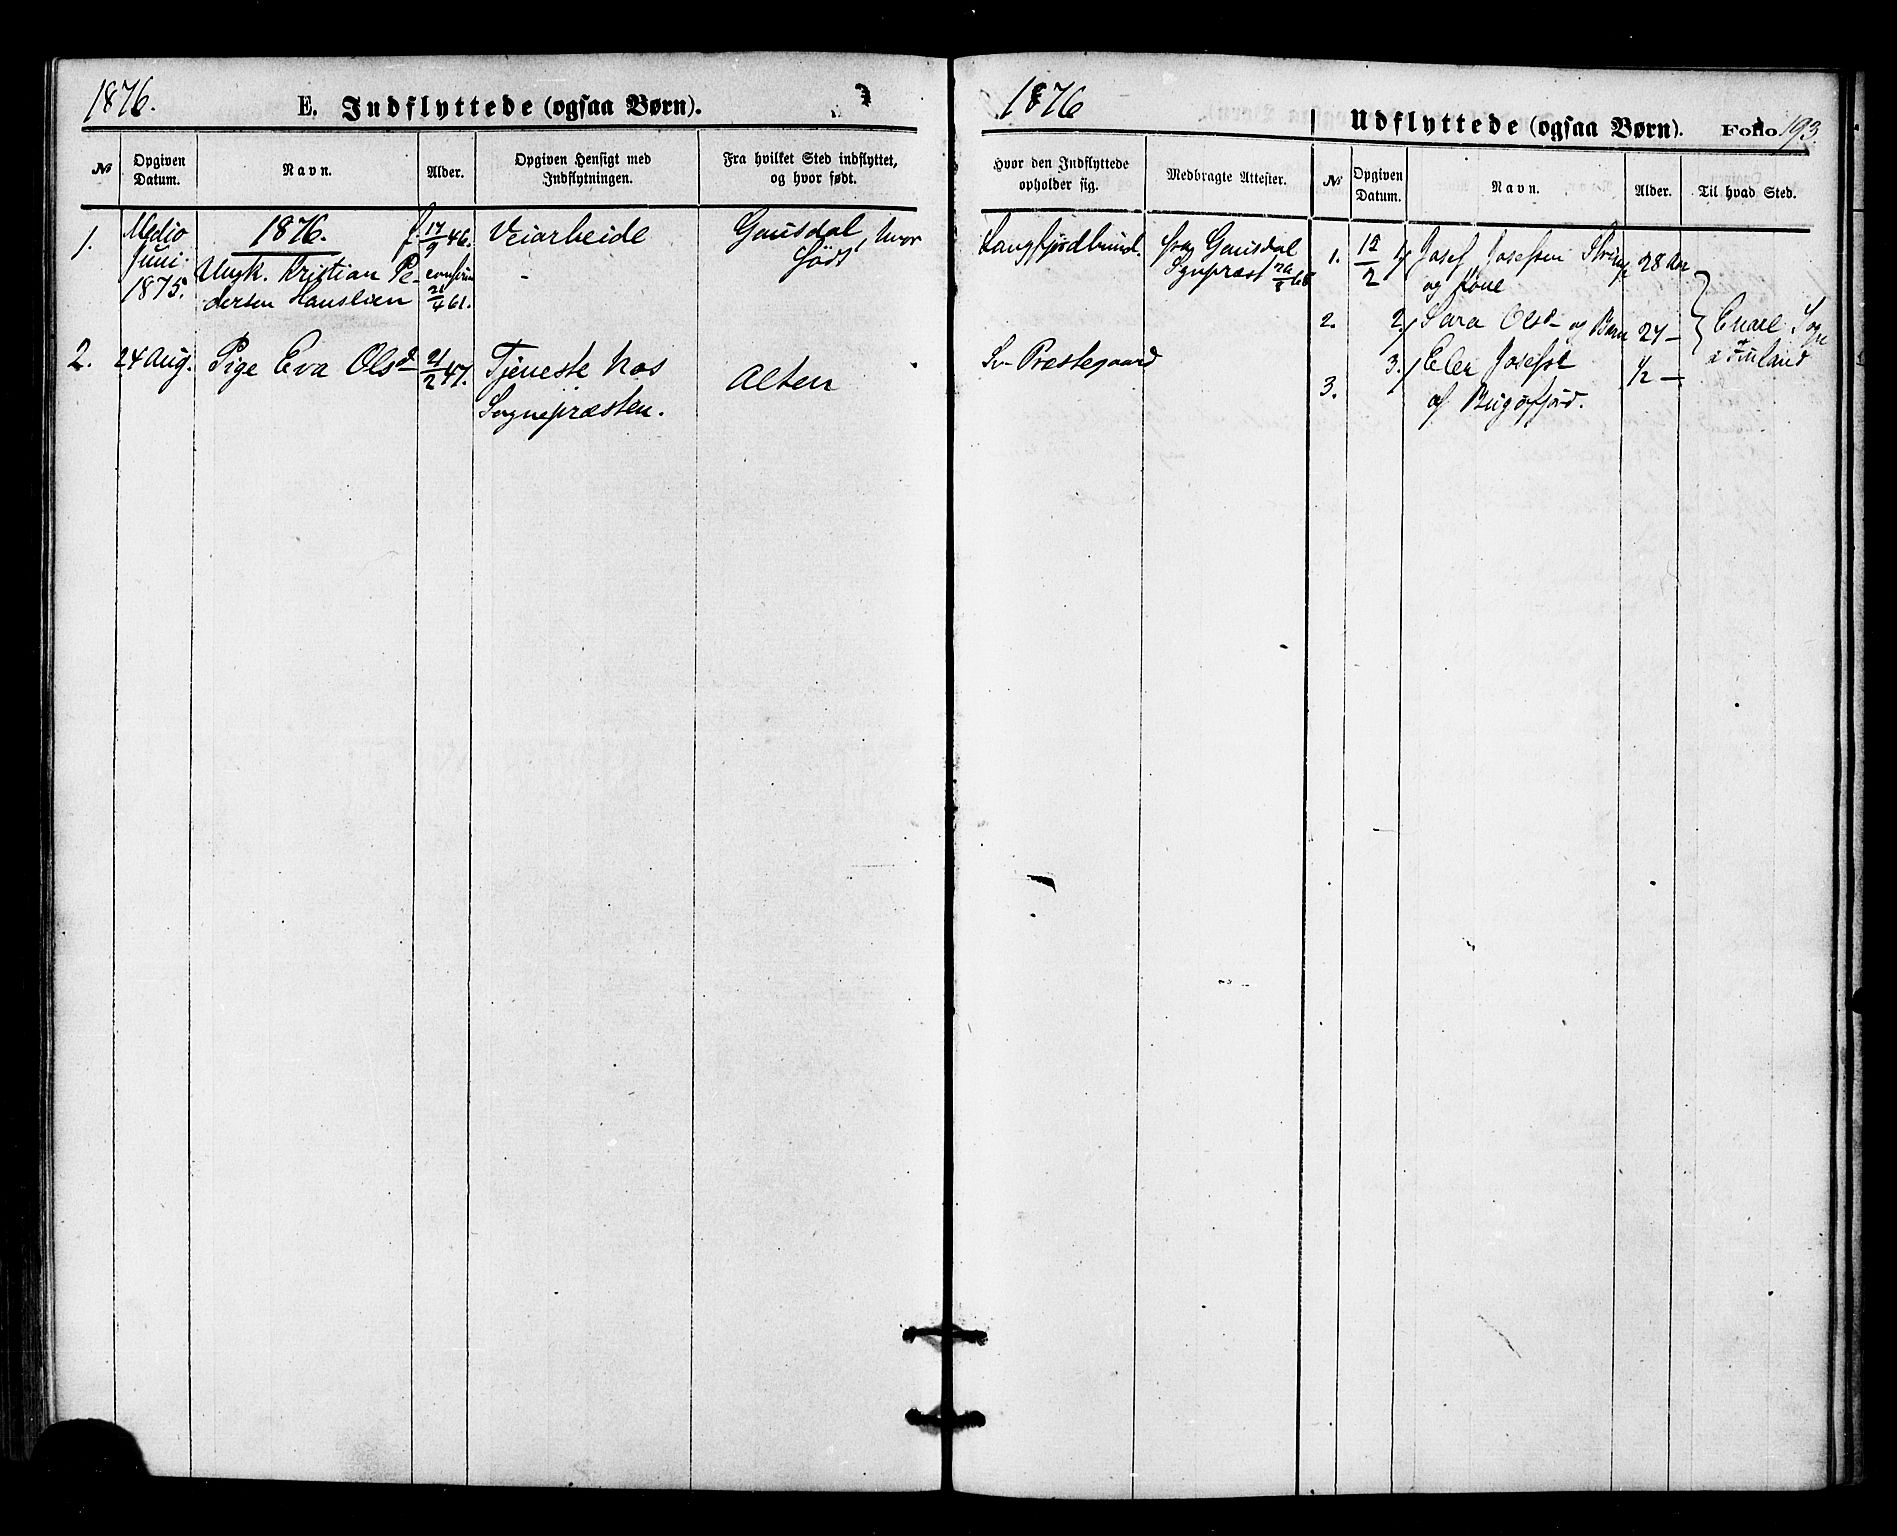 1876.
E. Indflyttede (ogsaa Børn).
№
Opgiven Datum.
Navn.
Alder.
Opgiven Hensigt med Indflytningen.
Fra hvilket Sted indflyttet, og hvor født.
1.
Medio
Juni
1875.
1876.
Ungk. Kristian Pe-
dersen Hauslien
f. 17/9 46.
21/4 61.
Veiarbeide
Gausdal, hvor
født
2.
24 Aug.
Pige Eva Olsd
21/2 47.
Tjeneste hos
Sognepræsten.
Alten
1876
Udflyttede (ogsaa Børn).
Folio 193
Hvor den Indflyttede opholder sig.
Medbragte Attester.
№
Opgiven Datum.
Navn.
Alder.
Til hvad Sted.
Langfjordbund.
fra Gausdal
Sgnpræst
1.
12/2
1/ Josef Josefsen
28 Aar
og Kone
2.
2/ Sara Olsd og Barn
24 —
Enare Sogn
i Finland
3.
3/ Elen Josefsd
1/2 —
af Bugøfjord.
Præstegaard